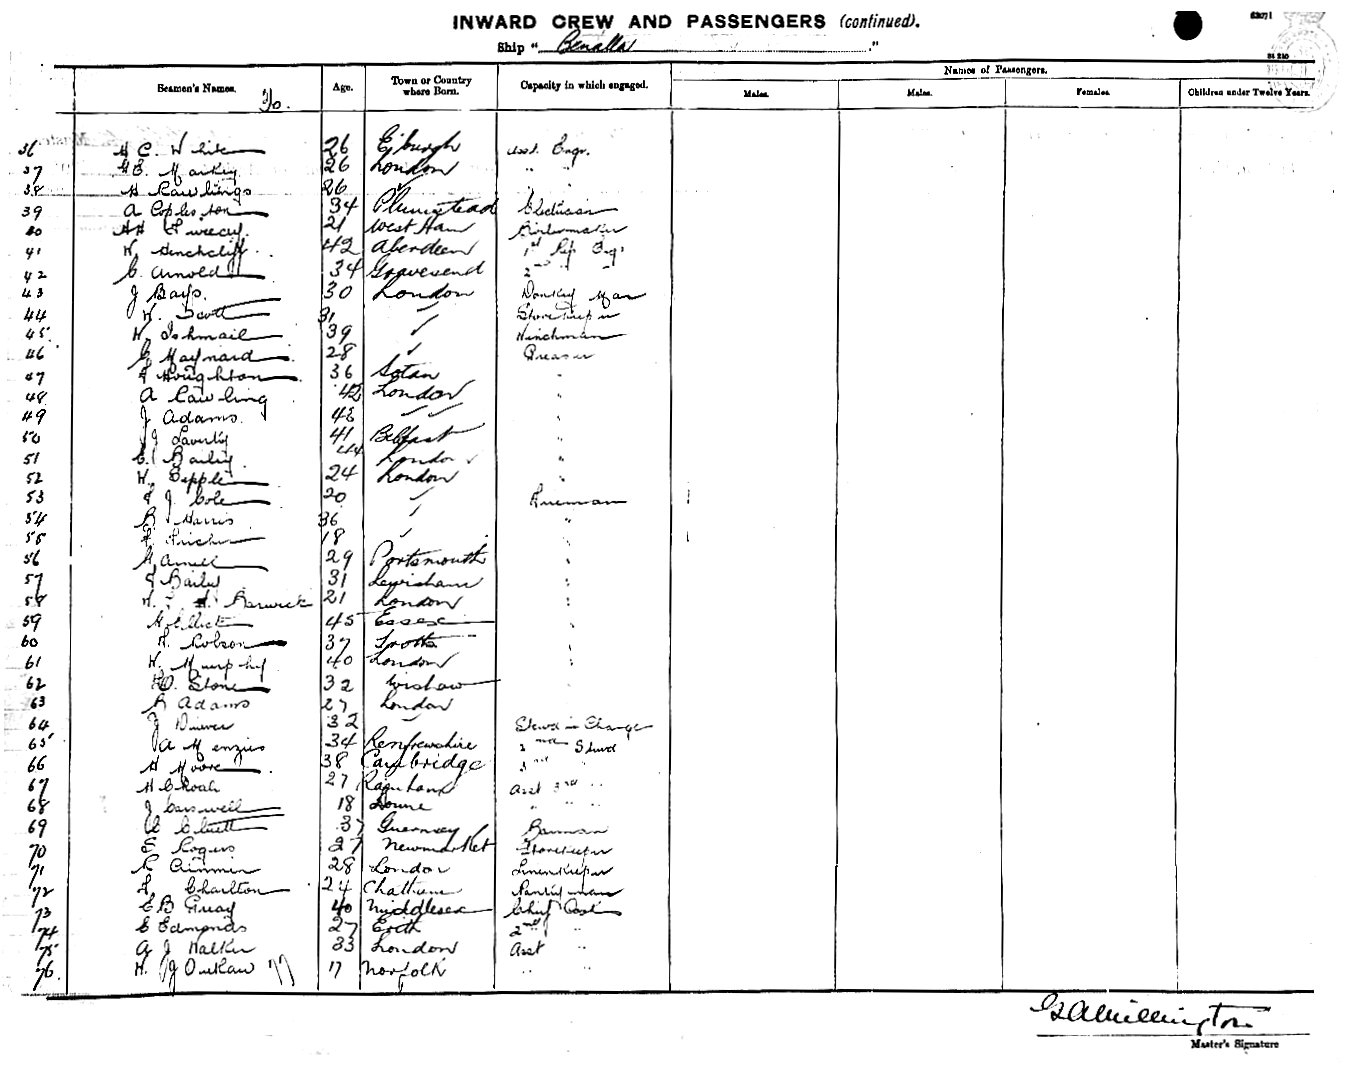 INWARD CREW AND PASSENGERS (continued).
Ship "Benalla"
Seamen's Names. Age. Town or Country where Born. Capacity in which engaged. Names of Passengers.
Males. Males. Females. Children under Twelve Years.
36 H C. White 26 E'burgh Asst. Engr.
37 26 London " "
38 H Rawlings 26 ✓
39 A Copleston 34 Plumstead Electrician
40 21 West Ham Boilermaker
41 W. Henchcliff 42 Aberdeen 1st Ref Engr
42 C. Arnold 34 Gravesend 2nd " "
43 J Bays. 30 London Donkey Man
44 W. Scott 31 ✓ Storekeeper
45 W. Ishmail 39 ✓ Winchman
46 G Maynard 28 ✓ Greaser
47 F Houghton 36 Sotan "
48 A Rawling 42 London "
49 J Adams. 48 ✓ ✓ "
50 J Laverty 41 Belfast "
51 C. Bailey 44 London "
52 W. 24 London "
53 F J. Cole 20 ✓ Fireman
54 B. Harris 36 ✓ "
55 18 ✓ "
56 29 Portsmouth "
57 F Bailey 31 Lewisham "
58 Berwick 21 London "
59 45 Essex "
60 Robson 37 "
61 W. Murphy 40 London "
62 Stone 32 Wishaw "
63 R Adams 27 London
64 J 32 ✓ Stewd in Charge
65 A Menzies 34 Renfrewshire 2nd Stewd
66 H Moore 38 Cambridge 3rd "
67 H C Roach 27 Asst 3rd "
68 J Carswell 18 " " "
69 Cluett 37 Guernsey Barman
70 E Rogers 27 Newmarket Storekeeper
71 28 London Linenkeeper
72 Charlton 24 Chatham Pantryman
73 E B 40 Middlesex Chief Cook
74 E Edmonds 27 Erith 2nd "
75 A J Walker 33 London Asst "
76 17 Norfolk " "
G A Millington
Master's Signature